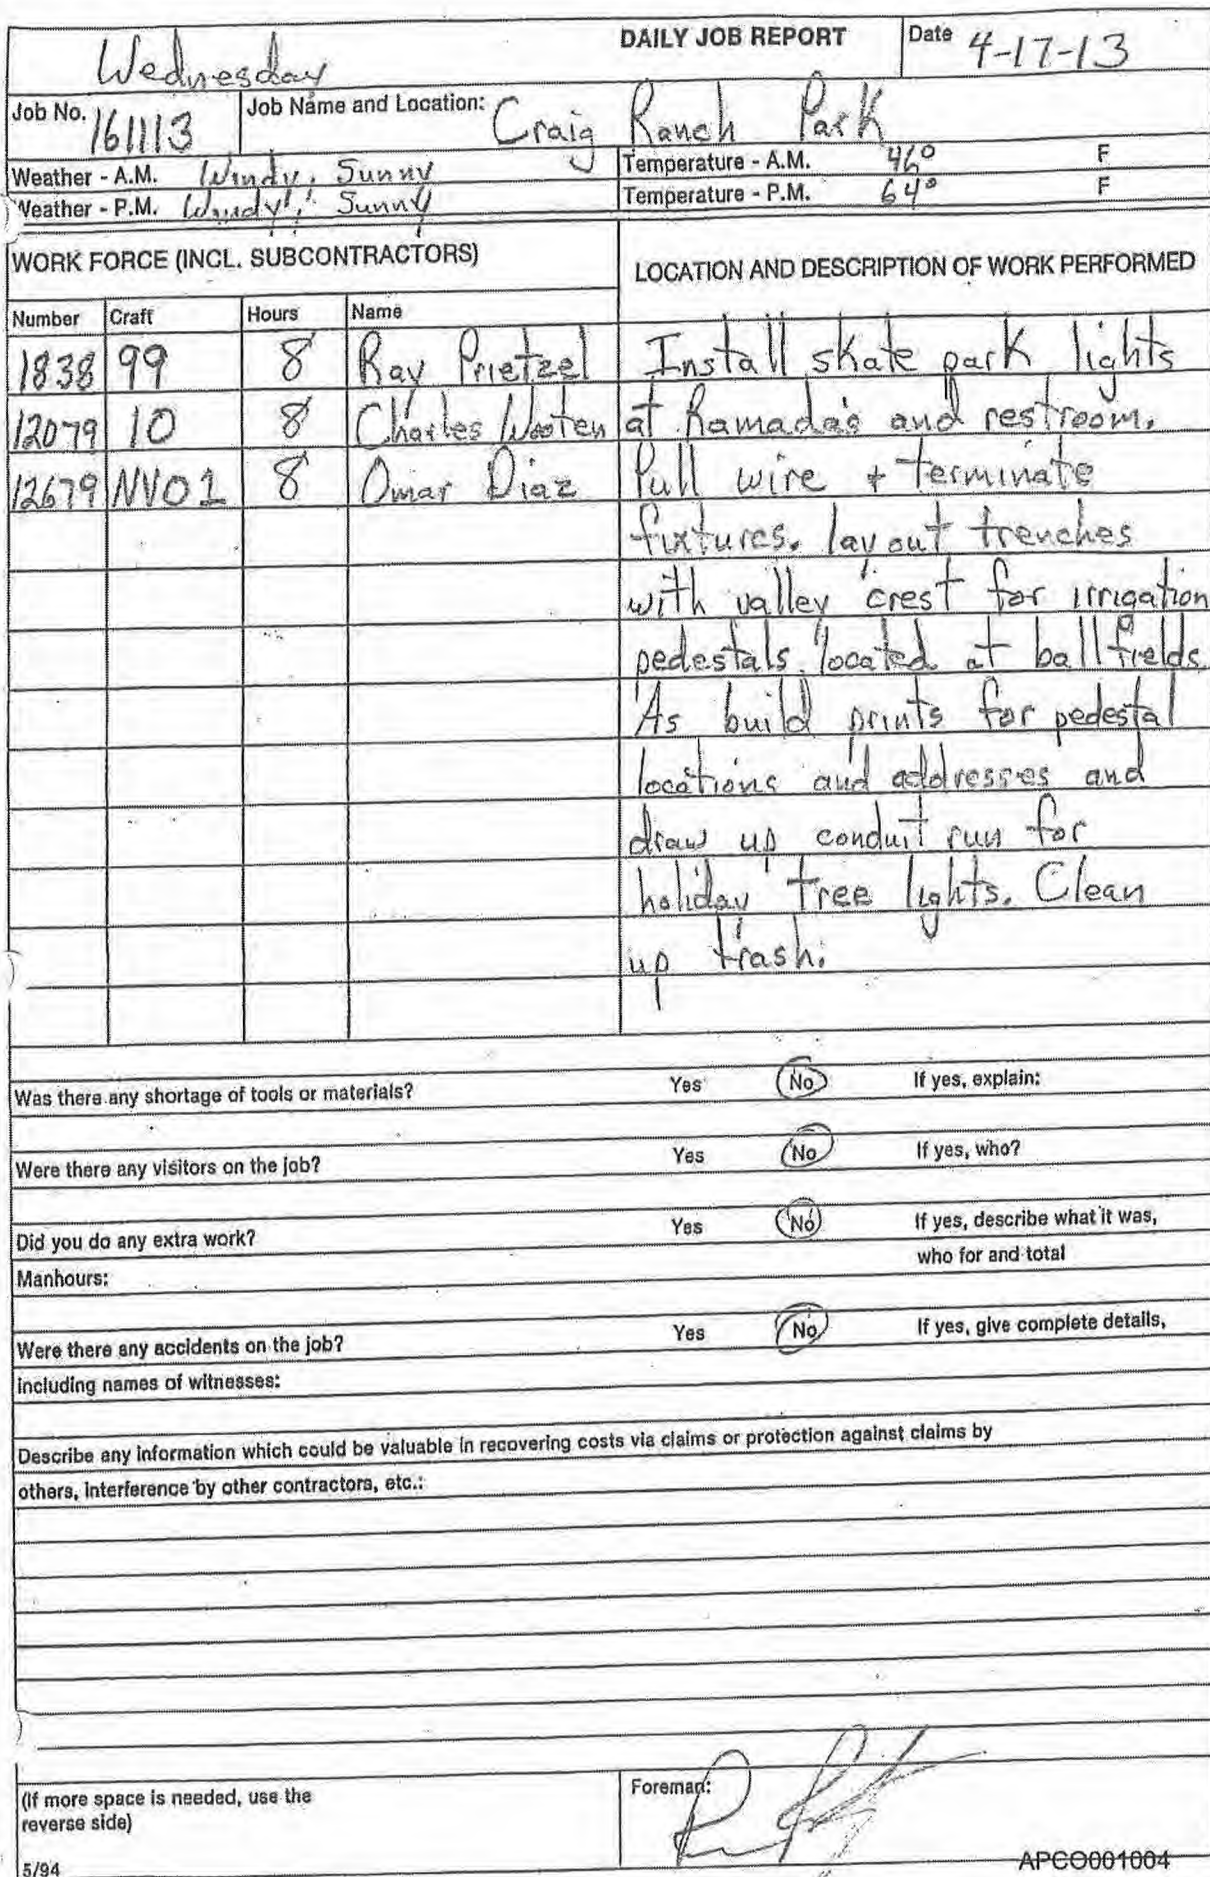 DAILY JOB REPORT
Date 4-17-13
Wednesday
Job No. 161113
Job Name and Location: Craig Ranch Park
Weather - A.M. Windy, Sunny
Temperature - A.M. 46° F
Weather - P.M. Windy, Sunny
Temperature - P.M. 64° F
WORK FORCE (INCL. SUBCONTRACTORS)
Number Craft Hours Name
1838 99 8 Ray Prietzel
12079 10 8 Charles Wooten
12679 NV01 8 Omar Diaz
LOCATION AND DESCRIPTION OF WORK PERFORMED
Install skate park lights
at Ramada's and restroom.
Pull wire + terminate
fixtures. lay out trenches
with valley crest for irrigation
pedestals located at ballfields.
As build prints for pedestal
locations and addresses and
draw up conduit run for
holiday tree lights. Clean
up trash.
Was there any shortage of tools or materials? Yes No If yes, explain:
Were there any visitors on the job? Yes No If yes, who?
Did you do any extra work? Yes No If yes, describe what it was,
who for and total
Manhours:
Were there any accidents on the job? Yes No If yes, give complete details,
including names of witnesses:
Describe any information which could be valuable in recovering costs via claims or protection against claims by
others, interference by other contractors, etc.:
(If more space is needed, use the
reverse side)
5/94
Foreman:
APCO001004